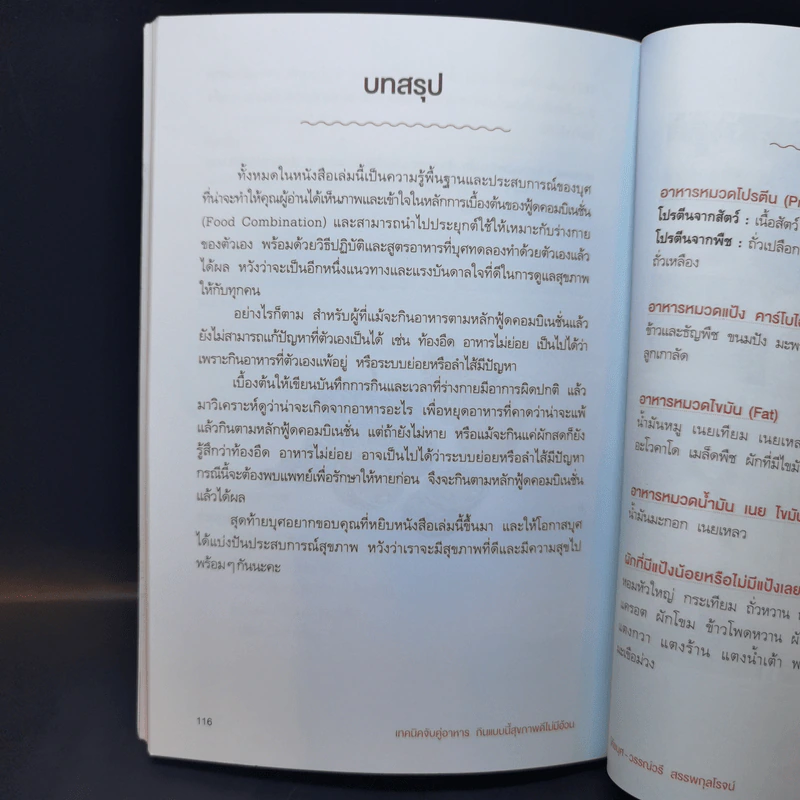 บทสรุป
ทั้งหมดในหนังสือเล่มนี้เป็นความรู้พื้นฐานและประสบการณ์ของบุศ
ที่น่าจะทำให้คุณผู้อ่านได้เห็นภาพและเข้าใจในหลักการเบื้องต้นของฟู้ดคอมบิเนชั่น
(Food Combination) และสามารถนำไปประยุกต์ใช้ให้เหมาะกับร่างกาย
ของตัวเอง พร้อมด้วยวิธีปฏิบัติและสูตรอาหารที่บุศทดลองทำด้วยตัวเองแล้ว
ได้ผล หวังว่าจะเป็นอีกหนึ่งแนวทางและแรงบันดาลใจที่ดีในการดูแลสุขภาพ
ให้กับทุกคน
อย่างไรก็ตาม สำหรับผู้ที่แม้จะกินอาหารตามหลักฟู้ดคอมบิเนชั่นแล้ว
ยังไม่สามารถแก้ปัญหาที่ตัวเองเป็นได้ เช่น ท้องอืด อาหารไม่ย่อย เป็นไปได้ว่า
เพราะกินอาหารที่ตัวเองแพ้อยู่ หรือระบบย่อยหรือลำไส้มีปัญหา
เบื้องต้นให้เขียนบันทึกการกินและเวลาที่ร่างกายมีอาการผิดปกติ แล้ว
มาวิเคราะห์ดูว่าน่าจะเกิดจากอาหารอะไร เพื่อหยุดอาหารที่คาดว่าน่าจะแพ้
แล้วกินตามหลักฟู้ดคอมบิเนชั่น แต่ถ้ายังไม่หาย หรือแม้จะกินแค่ผักสดก็ยัง
รู้สึกว่าท้องอืด อาหารไม่ย่อย อาจเป็นไปได้ว่าระบบย่อยหรือลำไส้มีปัญหา
กรณีนี้จะต้องพบแพทย์เพื่อรักษาให้หายก่อน จึงจะกินตามหลักฟู้ดคอมบิเนชั่น
แล้วได้ผล
สุดท้ายบุศอยากขอบคุณที่หยิบหนังสือเล่มนี้ขึ้นมา และให้โอกาสบุศ
ได้แบ่งปันประสบการณ์สุขภาพ หวังว่าเราจะมีสุขภาพที่ดีและมีความสุขไป
พร้อมๆกันนะคะ
116
เทคนิคจับคู่อาหาร กินแบบนี้สุขภาพดีไม่มีอ้วน
อาหารหมวดโปรตีน
โปรตีนจากสัตว์ : เนื้อสัตว์
โปรตีนจากพืช : ถั่วเปลือก
ถั่วเหลือง
อาหารหมวดแป้ง
ข้าวและธัญพืช ขนมปัง
ลูกเกาลัด
อาหารหมวดไขมัน (Fat)
น้ำมันหมู เนยเทียม
อะโวคาโด เมล็ดพืช ผักที่มีไขมัน
อาหารหมวดน้ำมัน เนย
น้ำมันมะกอก เนยเหลว
ผักที่มีแป้งน้อยหรือไม่มีแป้งเลย
หอมหัวใหญ่ กระเทียม ถั่วหวาน
แครอต ผักโขม ข้าวโพดหวาน
แตงกวา แตงร้าน แตงน้ำเต้า
มะเขือม่วง
วรรณ์วรี สรรพกุลโรจน์